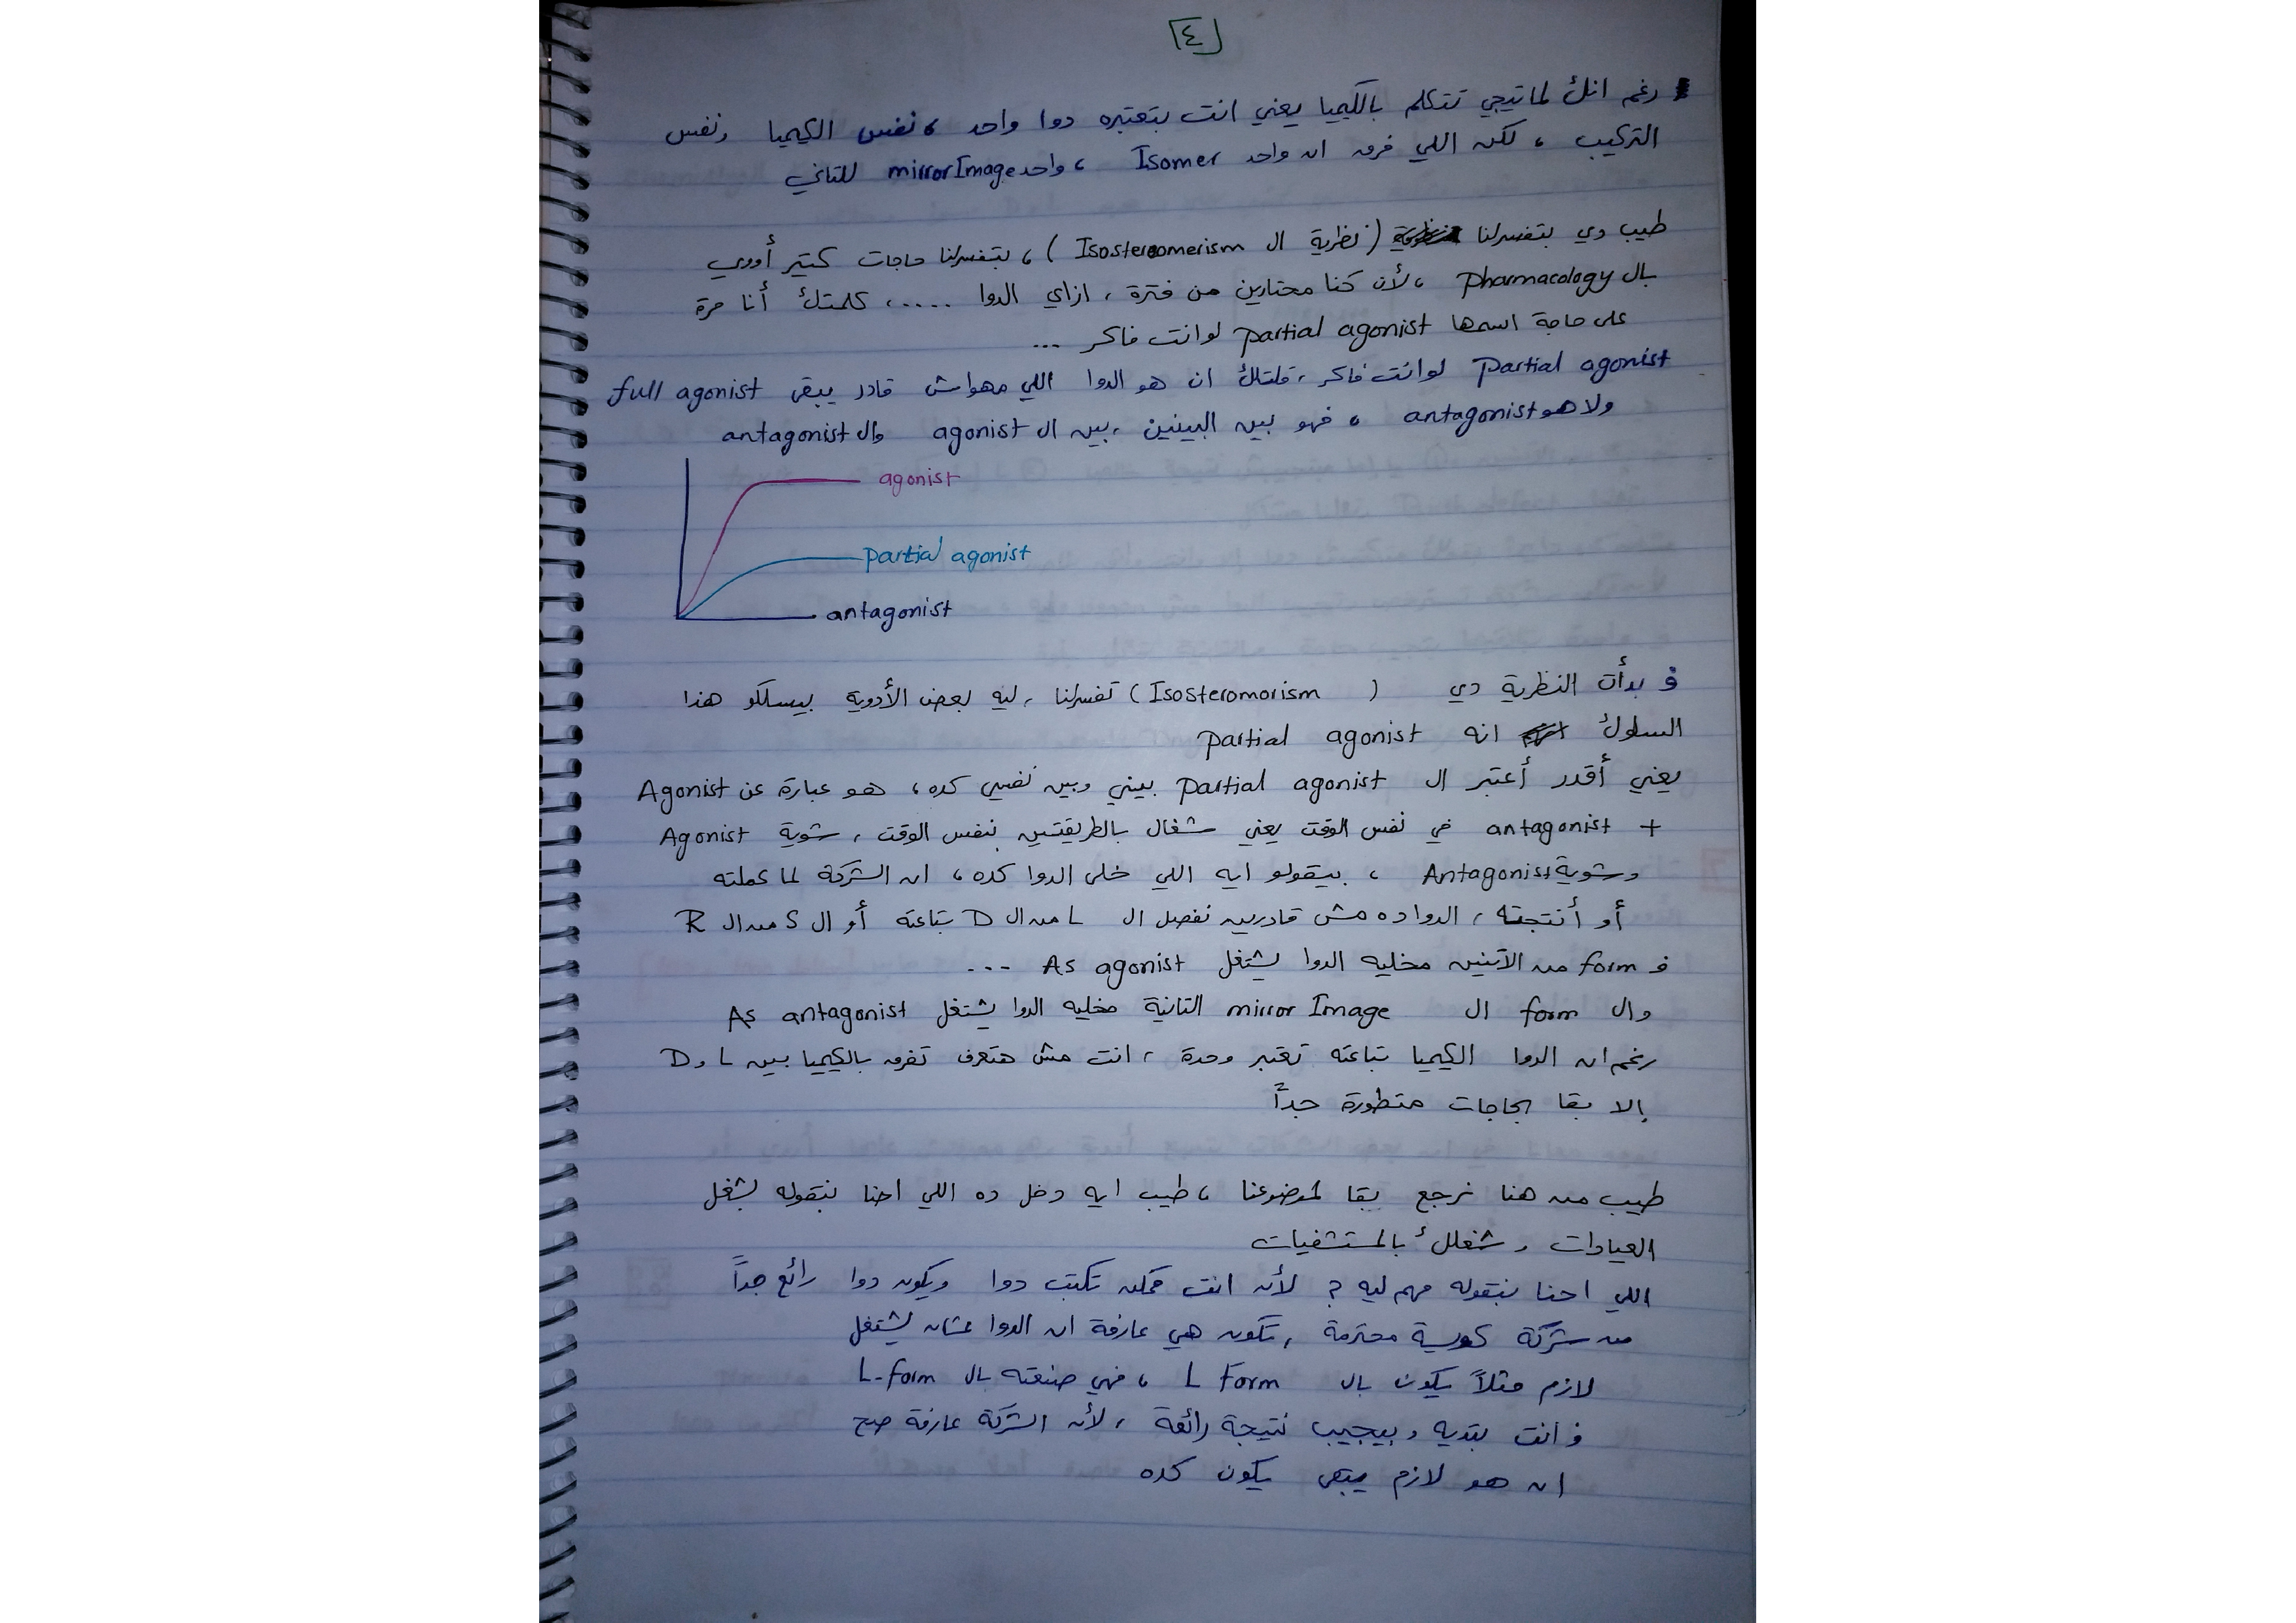 [٤]
رغم انك لما تيجي تتكلم بالكيميا يعني انت بتعتبره دوا واحد ، نفس الكيميا ونفس
التركيب ، لكن اللي فرق ان واحد Isomer ، واحد mirror Image للتاني
طيب دي بتفسرلنا (نظرية ال Isostereomerism) ، بتفسرلنا حاجات كتير أووي
بال Pharmacology ، لأن كنا محتارين من فترة ، ازاي الدوا ..... ، كلمتك أنا مرة
على حاجة اسمها partial agonist لو انت فاكر ...
Partial agonist لو انت فاكر ، قلتلك ان هو الدوا اللي مهواش قادر يبقى full agonist
ولا هو antagonist ، فهو بين البينين ، بين ال agonist وال antagonist
agonist
partial agonist
antagonist
ف بدأت النظرية دي (Isosteromorism) تفسرلنا ، ليه بعض الأدوية بيسلكو هذا
السلوك انه partial agonist
يعني أقدر أعتبر ال partial agonist بيني وبين نفسي كده ، هو عبارة عن Agonist
+ antagonist في نفس الوقت يعني شغال بالطريقتين بنفس الوقت ، شوية Agonist
وشوية Antagonist ، بيقولو ايه اللي خلى الدوا كده ، ان الشركة لما عملته
أو أنتجته ، الدوا ده مش قادرين نفصل ال L من ال D بتاعته أو ال S من ال R
ف form من الاتنين مخليه الدوا يشتغل As agonist ...
وال form ال mirror Image التانية مخليه الدوا يشتغل As antagonist
رغم ان الدوا الكيميا بتاعته تعتبر وحدة ، انت مش هتعرف تفرق بالكيميا بين L و D
إلا بقا بحاجات متطورة جداً
طيب من هنا نرجع بقا لموضوعنا ، طيب ايه دخل ده اللي احنا بنقوله بشغل
العيادات وشغلك بالمستشفيات
اللي احنا بنقوله مهم ليه ؟ لأن انت ممكن تكتب دوا ويكون دوا رائع جداً
من شركة كويسة محترمة ، تكون هي عارفة ان الدوا عشان يشتغل
لازم مثلاً يكون بال L Form ، فهي صنعته بال L-form
ف انت بتديه وبيجيب نتيجة رائعة ، لأن الشركة عارفة صح
ان هو لازم يبقى يكون كده